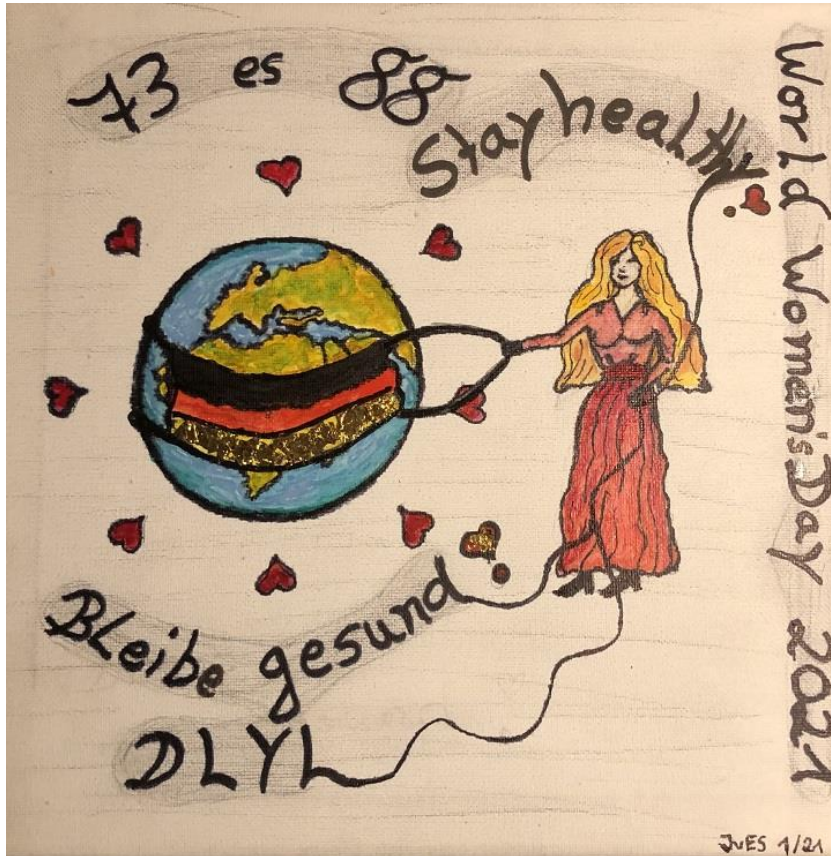 73 es 88
Stayhealthy!
World Women'sDay 2021
Bleibe gesund!
DLYL
JvES 1/21